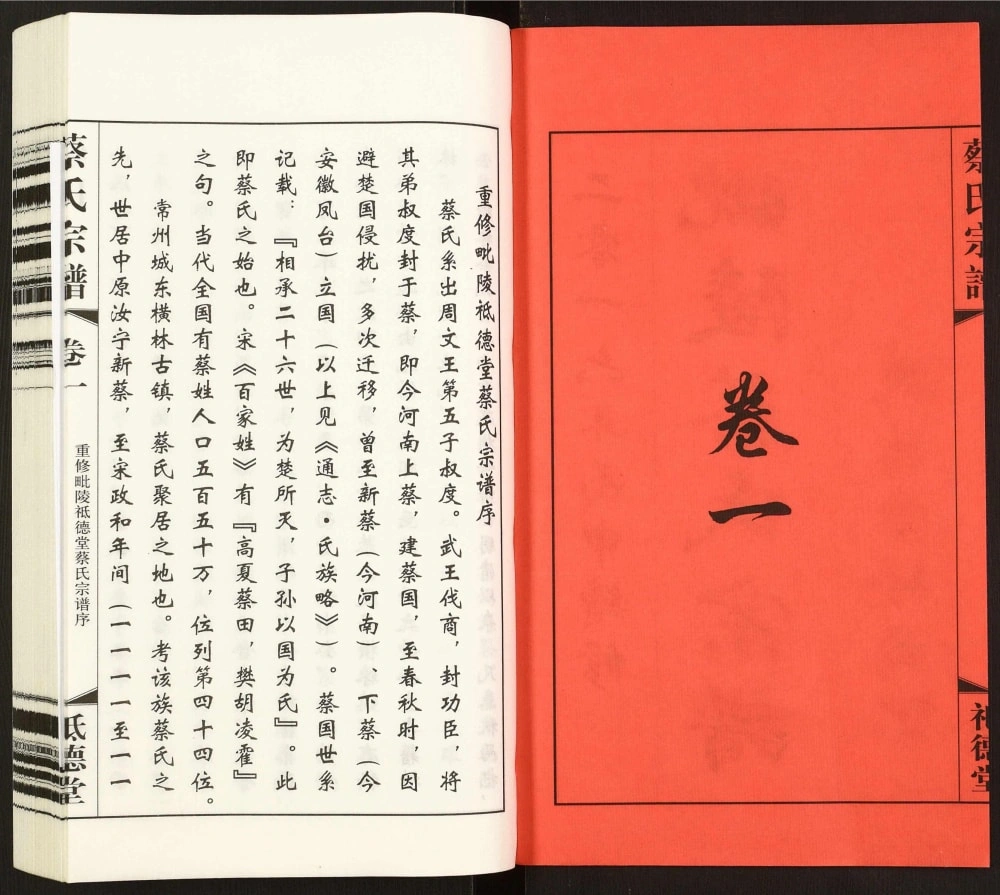 蔡氏宗譜
卷一
祗德堂
重修毗陵祗德堂蔡氏宗谱序
蔡氏系出周文王第五子叔度。武王伐商，封功臣，将
其弟叔度封于蔡，即今河南上蔡，建蔡国，至春秋时，因
避楚国侵扰，多次迁移，曾至新蔡（今河南）、下蔡（今
安徽凤台）立国（以上见《通志·氏族略》）。蔡国世系
记载：『相承二十六世，为楚所灭，子孙以国为氏』。此
即蔡氏之始也。宋《百家姓》有『高夏蔡田，樊胡凌霍』
之句。当代全国有蔡姓人口五百五十万，位列第四十四位。
常州城东横林古镇，蔡氏聚居之地也。考该族蔡氏之
先，世居中原汝宁新蔡，至宋政和年间（一一一一至一一
蔡氏宗譜
卷一
重修毗陵祗德堂蔡氏宗谱序
祗德堂